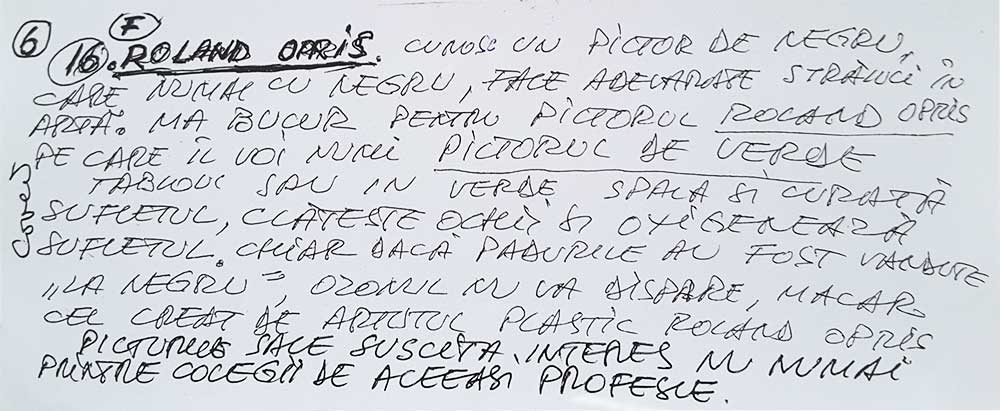 6 F
16. ROLAND OPRIS. CUNOSC UN PICTOR DE NEGRU,
CARE NUMAI CU NEGRU, FACE ADEVARATE STRĂLUCI ÎN
ARTĂ. MA BUCUR PENTRU PICTORUL ROLAND OPRIS
PE CARE ÎL VOI NUMI PICTORUL DE VERDE
TABLOUL SAU IN VERDE SPALA SI CURATĂ
SUFLETUL, CLĂTESTE OCHII SI OXIGENEAZĂ
SUFLETUL. CHIAR DACĂ PADURILE AU FOST VANDUTE
„LA NEGRU”, OZONUL NU VA DISPARE, MACAR
CEL CREAT DE ARTISTUL PLASTIC ROLAND OPRIS
PICTURILE SALE SUSCITA INTERES NU NUMAI
PRINTRE COLEGII DE ACEEASI PROFESIE.